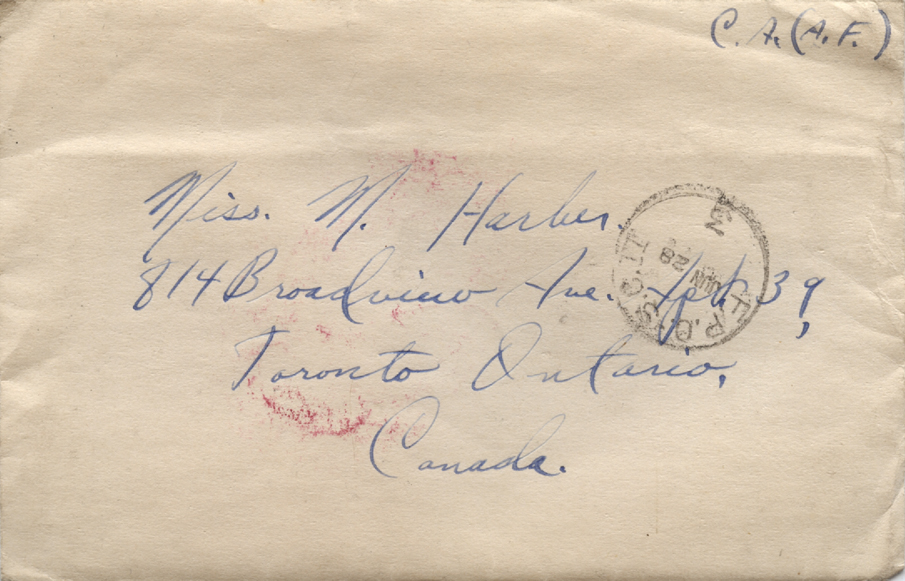 C. A. (A. F.)
Miss. M. Harber,
814 Broadview Ave. Apt 39,
Toronto Ontario,
Canada.
F.P.O. SC. 11
JUN 28